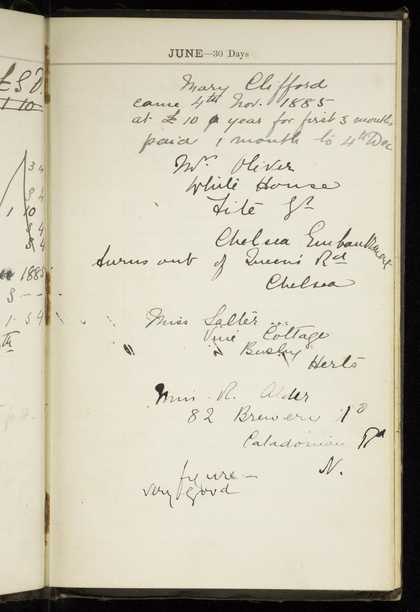 £ S D
1 10
3 4
9 4
1 10
9 4
9 4
1885
S - -
1 - 5 4
th
JUNE—30 Days
Mary Clifford
came 4th Nov. 1885
at £ 10 a year for first 3 months
paid 1 month to 4th Dec
Mrs Oliver
White House
Tite St
Chelsea Embankment
turns out of Queen's Rd
Chelsea
Miss Salter
Vine Cottage
" " Bushy
Herts
Miss R. Alder
82 Brewery Rd
Caledonian Rd
N.
figure —
very good